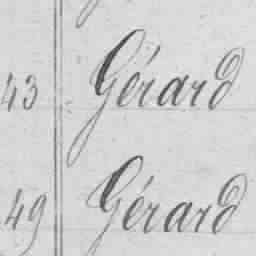 43 Gérard
49 Gérard